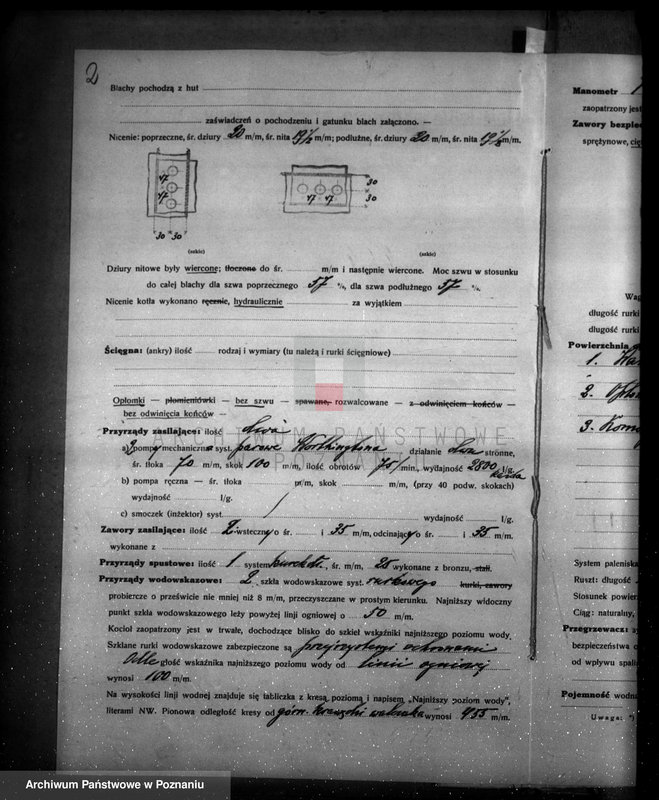 2
Blachy pochodzą z hut
zaświadczeń o pochodzeniu i gatunku blach załączono. —
Nicenie: poprzeczne, śr. dziury 20 m/m, śr. nita 19 1/2 m/m; podłużne, śr. dziury 20 m/m, śr. nita 19 1/2 m/m.
47
47
30 30
(szkic)
47 47
30
30
(szkic)
Dziury nitowe były wiercone; tłoczone do śr. m/m i następnie wiercone. Moc szwu w stosunku
do całej blachy dla szwa poprzecznego 57 %, dla szwa podłużnego 57 %.
Nicenie kotła wykonano ręcznie, hydraulicznie za wyjątkiem
Ścięgna: (ankry) ilość rodzaj i wymiary (tu należą i rurki ścięgniowe)
Opłomki — płomieniówki — bez szwu — spawane, rozwalcowane — z odwinięciem końców —
bez odwinięcia końców —
Przyrządy zasilające: ilość dwa
ARCHIWUM PAŃSTWOWE
a) 2 pompy mechaniczna syst. parowe Worthingtona działanie dwu stronne,
śr. tłoka 70 m/m, skok 100 m/m, ilość obrotów 75/min., wydajność 2800 l/g. każda
b) pompa ręczna — śr. tłoka m/m, skok m/m, (przy 40 podw. skokach)
wydajność l/g.
c) smoczek (inżektor) syst. wydajność l/g.
Zawory zasilające: ilość 2 wsteczny o śr. i 35 m/m, odcinający o śr. i 35 m/m.
wykonane z
Przyrządy spustowe: ilość 1 system kurek śr. m/m, 25 wykonane z bronzu, stali.
Przyrządy wodowskazowe: 2, szkła wodowskazowe syst. rurkowego kurki, zawory
probiercze o prześwicie nie mniej niż 8 m/m, przeczyszczane w prostym kierunku. Najniższy widoczny
punkt szkła wodowskazowego leży powyżej linji ogniowej o 50 m/m.
Kocioł zaopatrzony jest w trwałe, dochodzące blisko do szkieł wskaźniki najniższego poziomu wody.
Szklane rurki wodowskazowe zabezpieczone są przejrzystemi ochronami
Odległość wskaźnika najniższego poziomu wody od linii ogniowej
wynosi 100 m/m.
Na wysokości linji wodnej znajduje się tabliczka z kresą poziomą i napisem „Najniższy poziom wody",
literami NW. Pionowa odległość kresy od górn. krawędzi walczaka wynosi 955 m/m.
Manometr
zaopatrzony jest
Zawory bezpiec
sprężynowe, cię
Wag
długość rurki
długość rurki
Powierzchnia
1.
2.
3.
System paleniska
Ruszt: długość
Stosunek powier
Ciąg: naturalny,
Przegrzewacz:
bezpieczeństwa o
od wpływu spalin
Pojemność wodna
Uwaga: *)
Archiwum Państwowe w Poznaniu